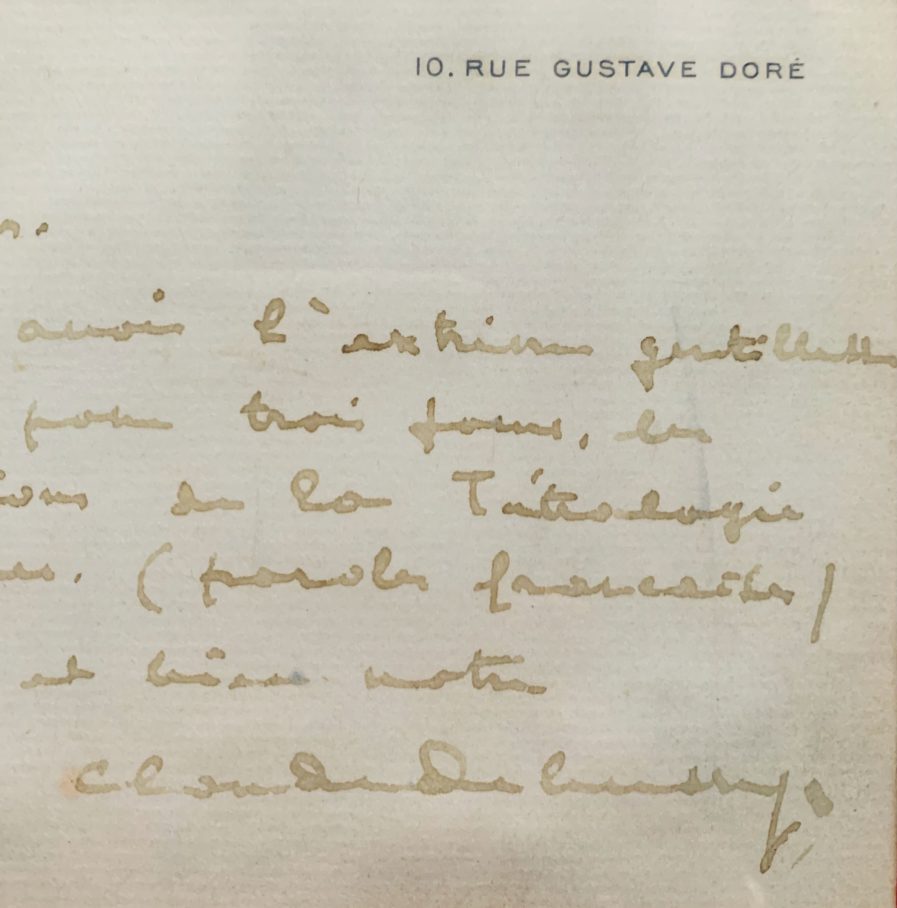 10. RUE GUSTAVE DORÉ
avoir l'extrême gentillesse
pour trois jours, les
de la Tétralogie
(paroles françaises)
et bien votre
Claude Debussy